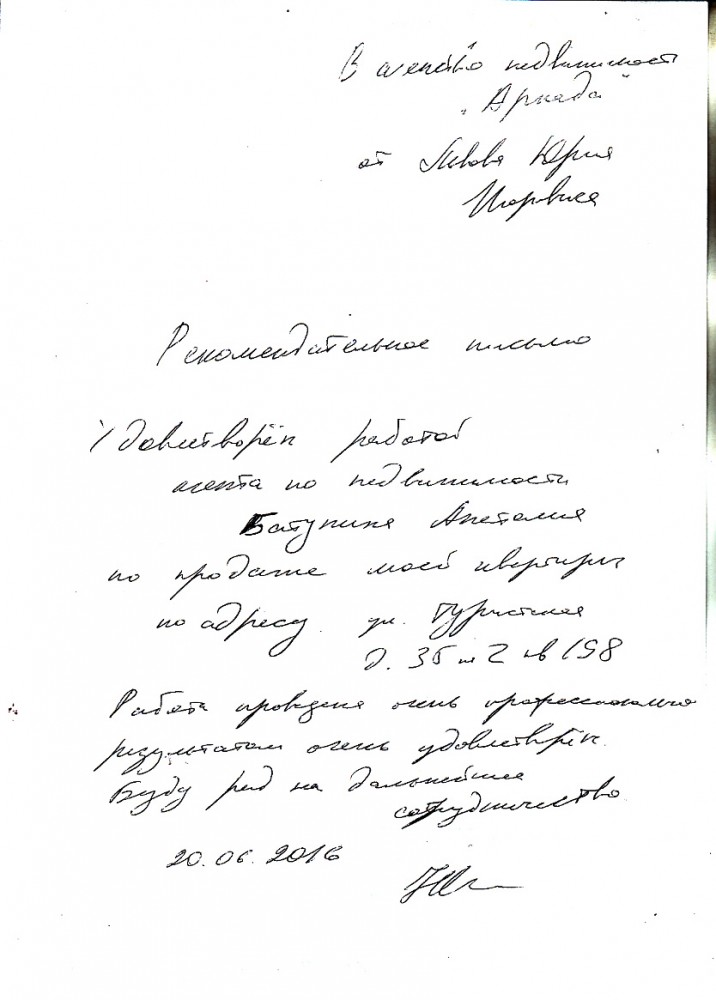 В агентство недвижимост
"Аркада"
от Юрия
Рекомендательное письмо
Удовлетворён работой
агента по недвижимости
Батунина Анатолия
по продаже моей квартиры
по адресу ул. Туристская
д. 35 к 2 кв 158
Работа проведена очень профессионально
результатом очень удовлетворён.
Буду рад на дальнейшее
сотрудничество
20.06.2016